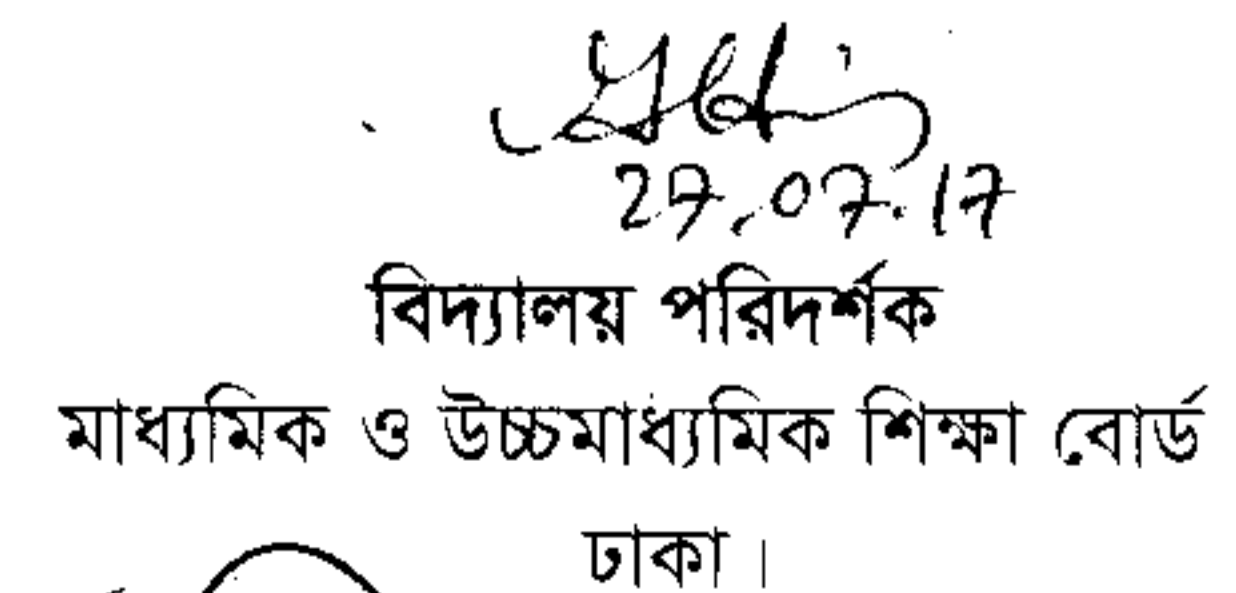 27.07.17
বিদ্যালয় পরিদর্শক
মাধ্যমিক ও উচ্চমাধ্যমিক শিক্ষা বোর্ড
ঢাকা।